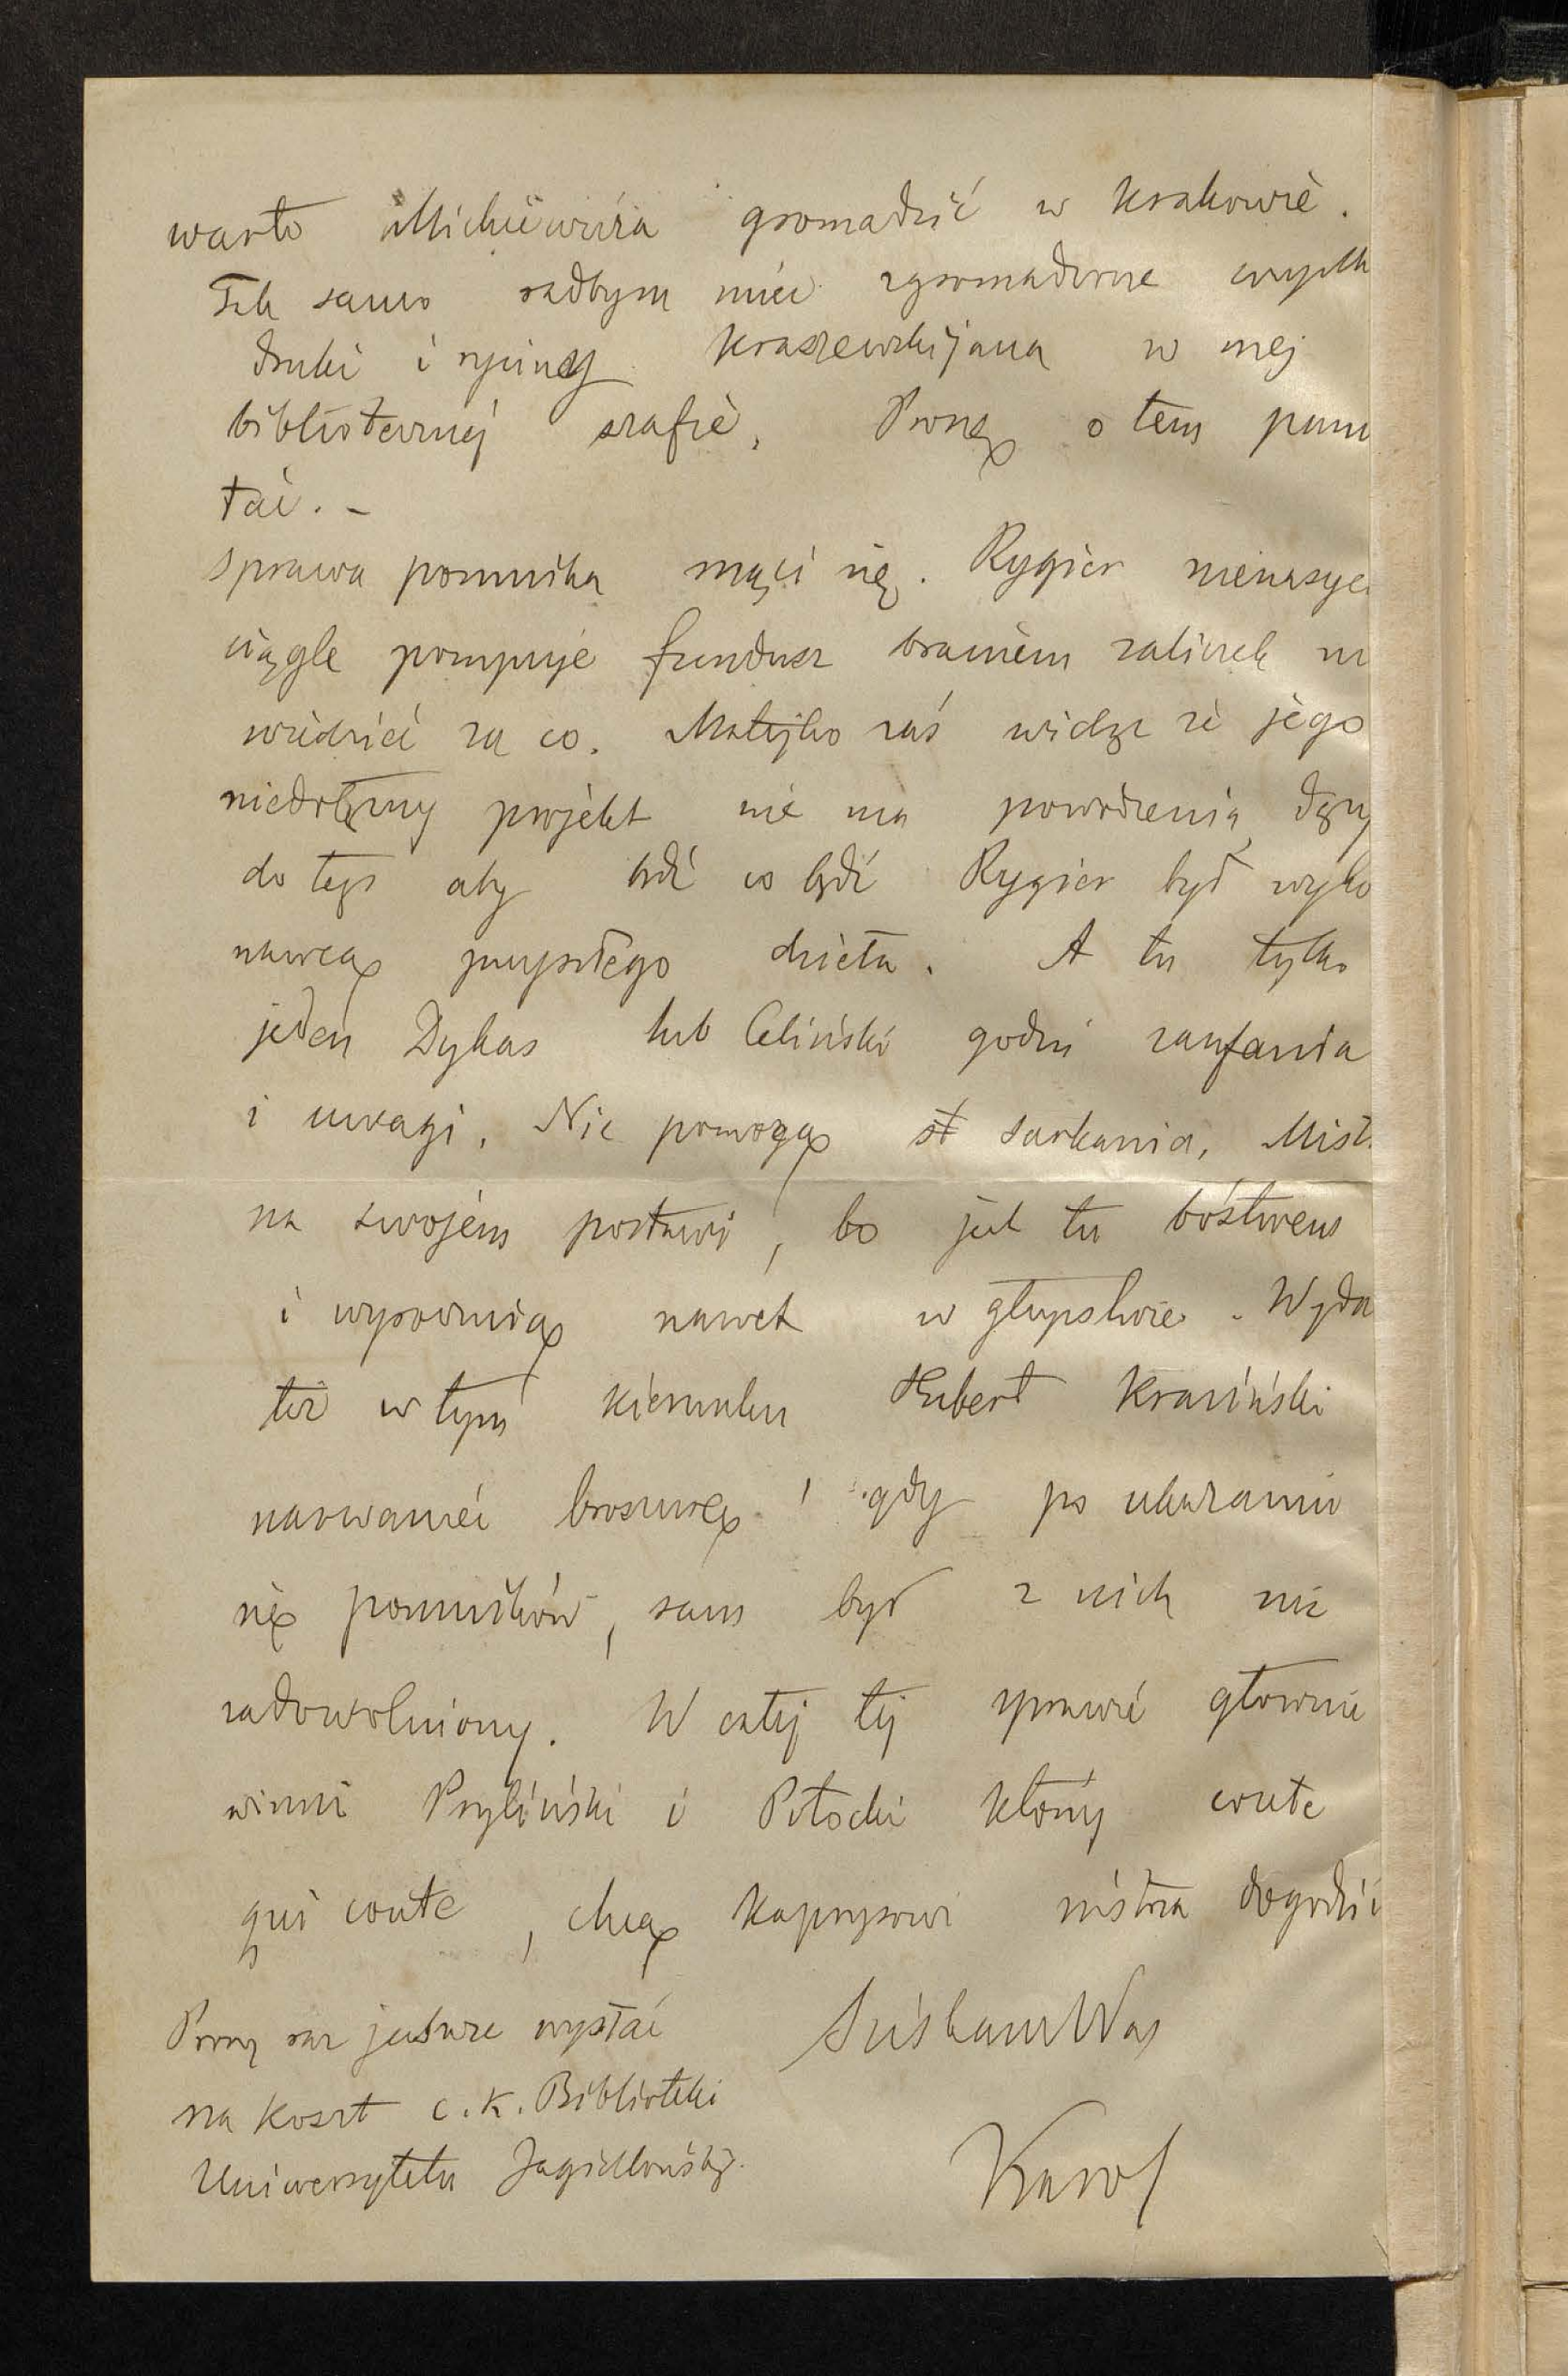 warto Mickiewicza gromadzić w Krakowie.
Tak samo radbym mieć zgromadzone wszystk
druki i ryciny Kraszewskijana w mej
bibliotecznej szafie, Proszę o tem pamię
tać. -
Sprawa pomnika mąci się. Rygier nienasyc
ciągle pompuje fundusz braniem zaliczek ni
wiedzieć za co. Matejko zaś widząc że jego
niedołężny projekt nie ma powodzenia dąży
do tego aby bądź co bądź Rygier był wyko
nawcą przyszłego dzieła. A tu tylko
jeden Dykas lub Celiński godni zaufania
i uwagi. Nic pomogą sarkania, Mistrz
na swojem postawi, bo jest tu bóstwem
i wyrocznią nawet w głupstwie. Wydał
też w tym kierunku Hubert Krasiński
broszurę, gdy po ukazaniu
się pomników, sam był z nich nie
zadowolniony. W całej tej sprawie głownie
winni Pryliński i Potocki który coute
qui coute, chcą kaprysowi mistrza dogodzić
Ściskam Was
Karol
Proszę raz jeszcze wysłać
na koszt c. k. Biblioteki
Uniwersytetu Jagiellońskiej.